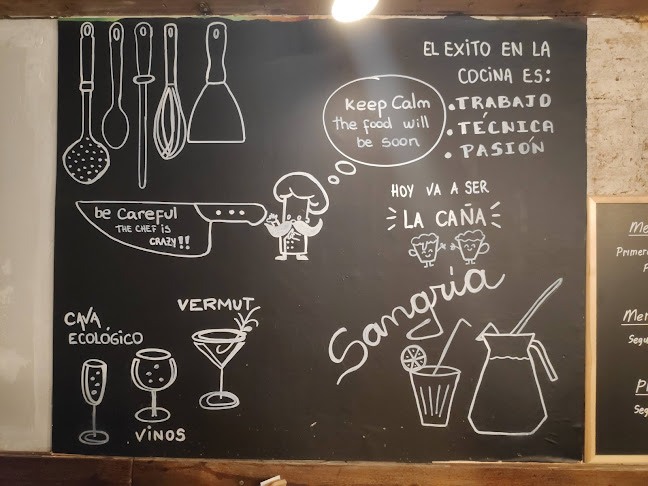 EL EXITO EN LA
COCINA ES:
.TRABAJO
.TÉCNICA
. PASIÓN
Keep Calm
the food will
be soon
be Careful
THE CHEF IS
CRAZY!!
HOY VA A SER
LA CAÑA
CAVA
ECOLÓGICO
VERMUT
VINOS
Sangría